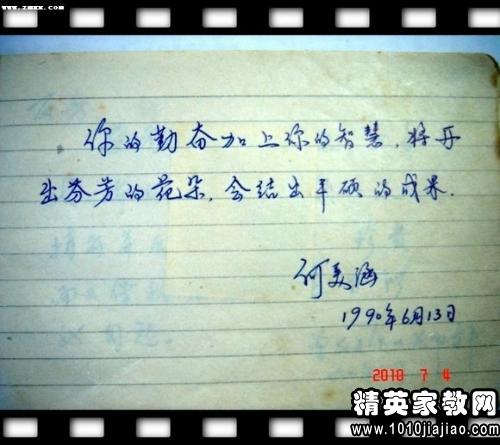 www.zmxx.com
你的勤奋加上你的智慧,将开
出芬芳的花朵,会结出丰硕的成果.
何美涵
1990年6月13日
2010 7 4
精英家教网
www.1010jiajiao.com